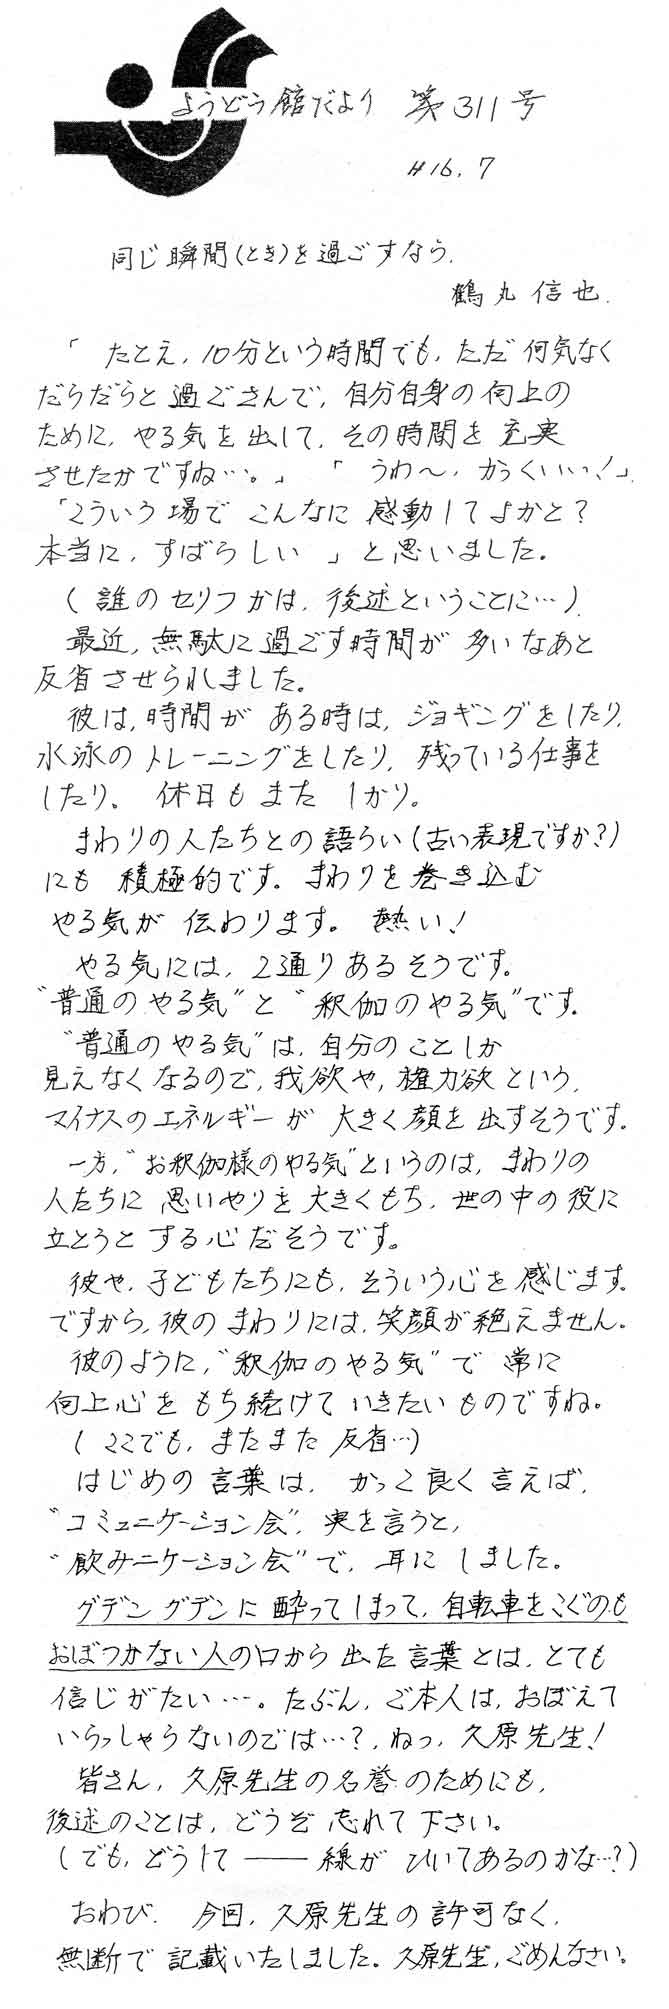 ようどう館だより 第311号
H16.7
同じ瞬間(とき)を過ごすなら.
鶴丸信也.
「たとえ,10分という時間でも,ただ何気なく
だらだらと過ごさんで,自分自身の向上の
ために,やる気を出して,その時間を充実
させたかですね…。」「うわ〜,かっくいい!」
「こういう場でこんなに感動してよかと?
本当に,すばらしい」と思いました。
(誰のセリフかは,後述ということに…)
最近,無駄に過ごす時間が多いなあと
反省させられました。
彼は,時間がある時は,ジョギングをしたり,
水泳のトレーニングをしたり,残っている仕事を
したり。休日もまたしかり。
まわりの人たちとの語らい(古い表現ですか?)
にも積極的です。まわりを巻き込む
やる気が伝わります。熱い!
やる気には,2通りあるそうです。
"普通のやる気"と"釈伽のやる気"です.
"普通のやる気"は,自分のことしか
見えなくなるので,我欲や,権力欲という,
マイナスのエネルギーが大きく顔を出すそうです.
一方,"お釈伽様のやる気"というのは,まわりの
人たちに思いやりを大きくもち,世の中の役に
立とうとする心だそうです。
彼や,子どもたちにも,そういう心を感じます.
ですから,彼のまわりには,笑顔が絶えません.
彼のように,"釈伽のやる気"で常に
向上心をもち続けていきたいものですね。
(ここでも,またまた反省…)
はじめの言葉は,かっこ良く言えば,
"コミュニケーション会",実を言うと,
"飲みニケーション会"で,耳にしました。
グデングデンに酔ってしまって,自転車をこぐのも
おぼつかない人の口から出た言葉とは,とても
信じがたい…。たぶん,ご本人は,おぼえて
いらっしゃらないのでは…?,ねっ,久原先生!
皆さん,久原先生の名誉のためにも,
後述のことは,どうぞ忘れて下さい。
(でも,どうして――線がひいてあるのかな…?)
おわび.今回,久原先生の許可なく,
無断で記載いたしました。久原先生,ごめんなさい。